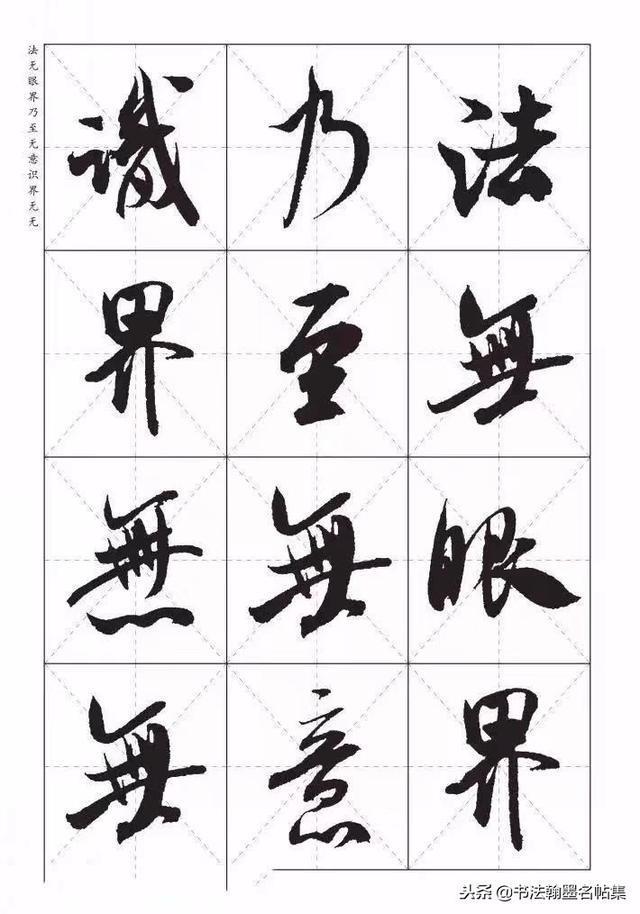 法無眼界
乃至無意
識界無無
法无眼界乃至无意识界无无
头条@书法翰墨名帖集